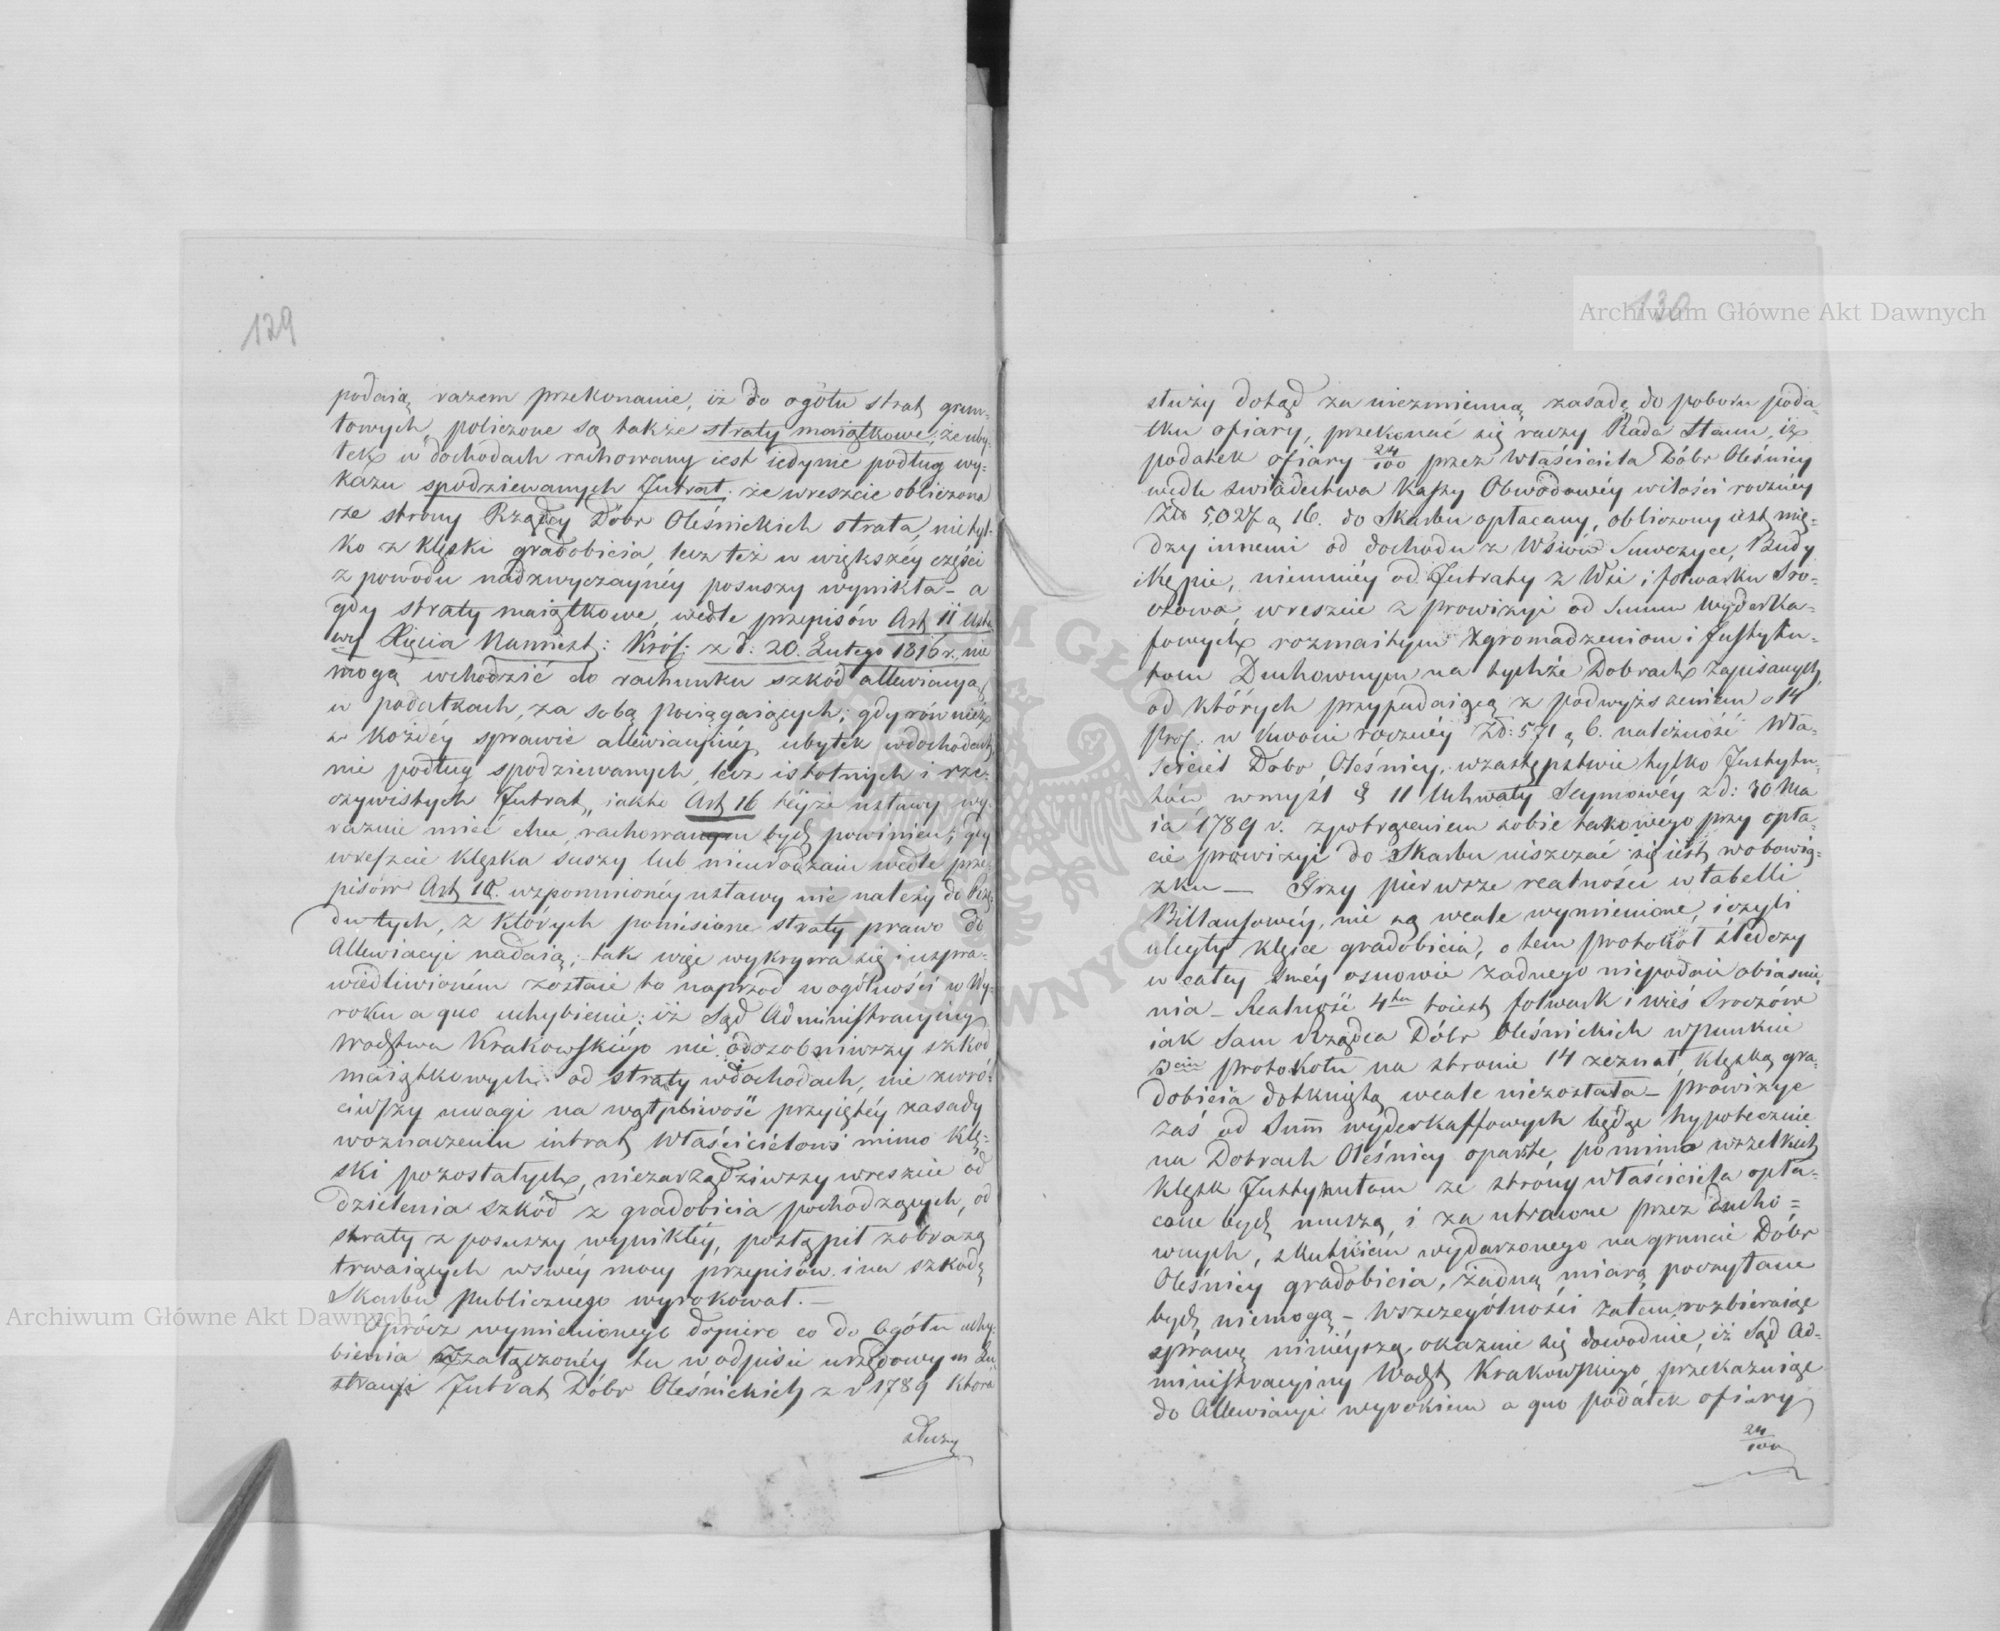 129
podaią razem przekonanie, iż do ogółu strat grun-
towych, policzone są także straty maiątkowe; że uby-
tek w dochodach rachowany iest iedynie podług wy-
kazu spodziewanych Intrat. że wreszcie obliczona
ze strony Rządcy Dóbr Oleśnickich strata, nie tyl-
ko z klęski gradobicia, lecz też w większéy części
z powodu nadzwyczaynéy posuszy wynikła – a
gdy straty maiątkowe, wedle przepisów Art 11 Usta
wy Xięcia Namiest: Król: z d: 20. Lutego 1816 r. nie
mogą wchodzić do rachunku szkód allewiacyą
w podatkach, za sobą pociągaiących; gdy również
w każdéy sprawie allewiacyinéy ubytek w dochodach
nie podług spodziewanych, lecz istotnych i rze-
czywistych Intrat, iakto Art 16 téyże ustawy wy-
raźnie mieć chce, rachowanym bydź powinien; gdy
wreszcie klęska suszy lub nieurodzaiu wedle prze
pisów Art 10. wzpomnionéy ustawy nie należy do Rzę-
du tych, z których poniesione straty prawo do
Allewiacyi nadaią; tak więc wykrywa się i uspra-
wiedliwioném zostaie to naprzód w ogólności w Wy-
roku a quo uchybienie: iż Sąd Administracyiny
Wodztwa Krakowskiego nie odosobniwszy szkód
maiątkowych od straty w dochodach, nie zwró-
ciwszy uwagi na wątpliwość przyiętéy zasady
w oznaczeniu intrat Właścicielowi mimo klę-
ski pozostałych, niezarządziwszy wreszcie od
dzielenia szkód z gradobicia pochodzących, od
straty z posuszy wynikłéy, postąpił z obrazą
trwaiących w swéy mocy przepisów i na szkodę
Skarbu publicznego wyrokował. –
Oprócz wymienionego dopiero co do Ogółu uchy-
bienia z załączonéy tu w odpisie urzędowym Lu-
stracyi Intrat Dóbr Oleśnickich z r 1789 która
służy
130
służy dotąd za niezmienną zasadę do poboru poda-
tku ofiary, przekonać się raczy Rada Stanu, iż
podatek ofiary 24/100 przez Właściciela Dóbr Oleśnicy
wedle świadectwa Kassy Obwodowéy w ilości roczney
Złł 5,027 g 16. do Skarbu opłacany, obliczony iest mię-
dzy innemi od dochodu z Wsiów Suwczyce, Budy
i Kępie, niemniéy od Intraty z Wsi i folwarku Sro-
czowa, wreszcie z prowizyi od Summ Wyderka-
fowych rozmaitym Zgromadzeniom i Instytu-
tom Duchownym na tychże Dobrach zapisanych,
od których przypadaiącą z podwyższeniem o 14
proC. w kwocie roczney Zł: 571 g 6. należność Wła-
ściciel Dóbr Oleśnicy, w zastępstwie tylko Instytu-
tów, w myśl § 11 Uchwały Seymowéy z d: 30 Ma
ia 1789 r. z potrąceniem sobie takowego przy opła-
cie prowizyi do Skarbu uiszczać się iest w obowią-
zku – Trzy pierwsze realności w tabelli
Billansowéy, nie są wcale wymienione, i czyli
uległy klęsce gradobicia, o tem protokół śledczy
w całey swéy osnowie żadnego niepodaie obiaśnie
nia – Realność 4ta toiest folwark i wieś Sroczów
iak Sam Rządca Dóbr Oleśnickich w punkcie
protokółu na stronie 14 zeznał, klęską gra-
dobicia dotkniętą wcale niezostała – prowizye
zaś od Summ wyderkaffowych będąc hypotecznie
na Dobrach Oleśnicy oparte, pomimo wszelkich
klęsk Instytutom ze strony właściciela opła-
cane bydź muszą, i za utracone przez Ducho=
wnych, skutkiem wydarzonego na gruncie Dóbr
Oleśnicy gradobicia, żadną miarą poczytane
bydź niemogą – W szczególności zatem rozbieraiąc
sprawę ninieyszą, okazuie się dowodnie, iż Sąd Ad-
ministracyiny Wodzt Krakowskiego, przekazuiąc
do Allewiacyi wyrokiem a quo podatek ofiary
24/100
Archiwum Główne Akt Dawnych
Archiwum Główne Akt Dawnych